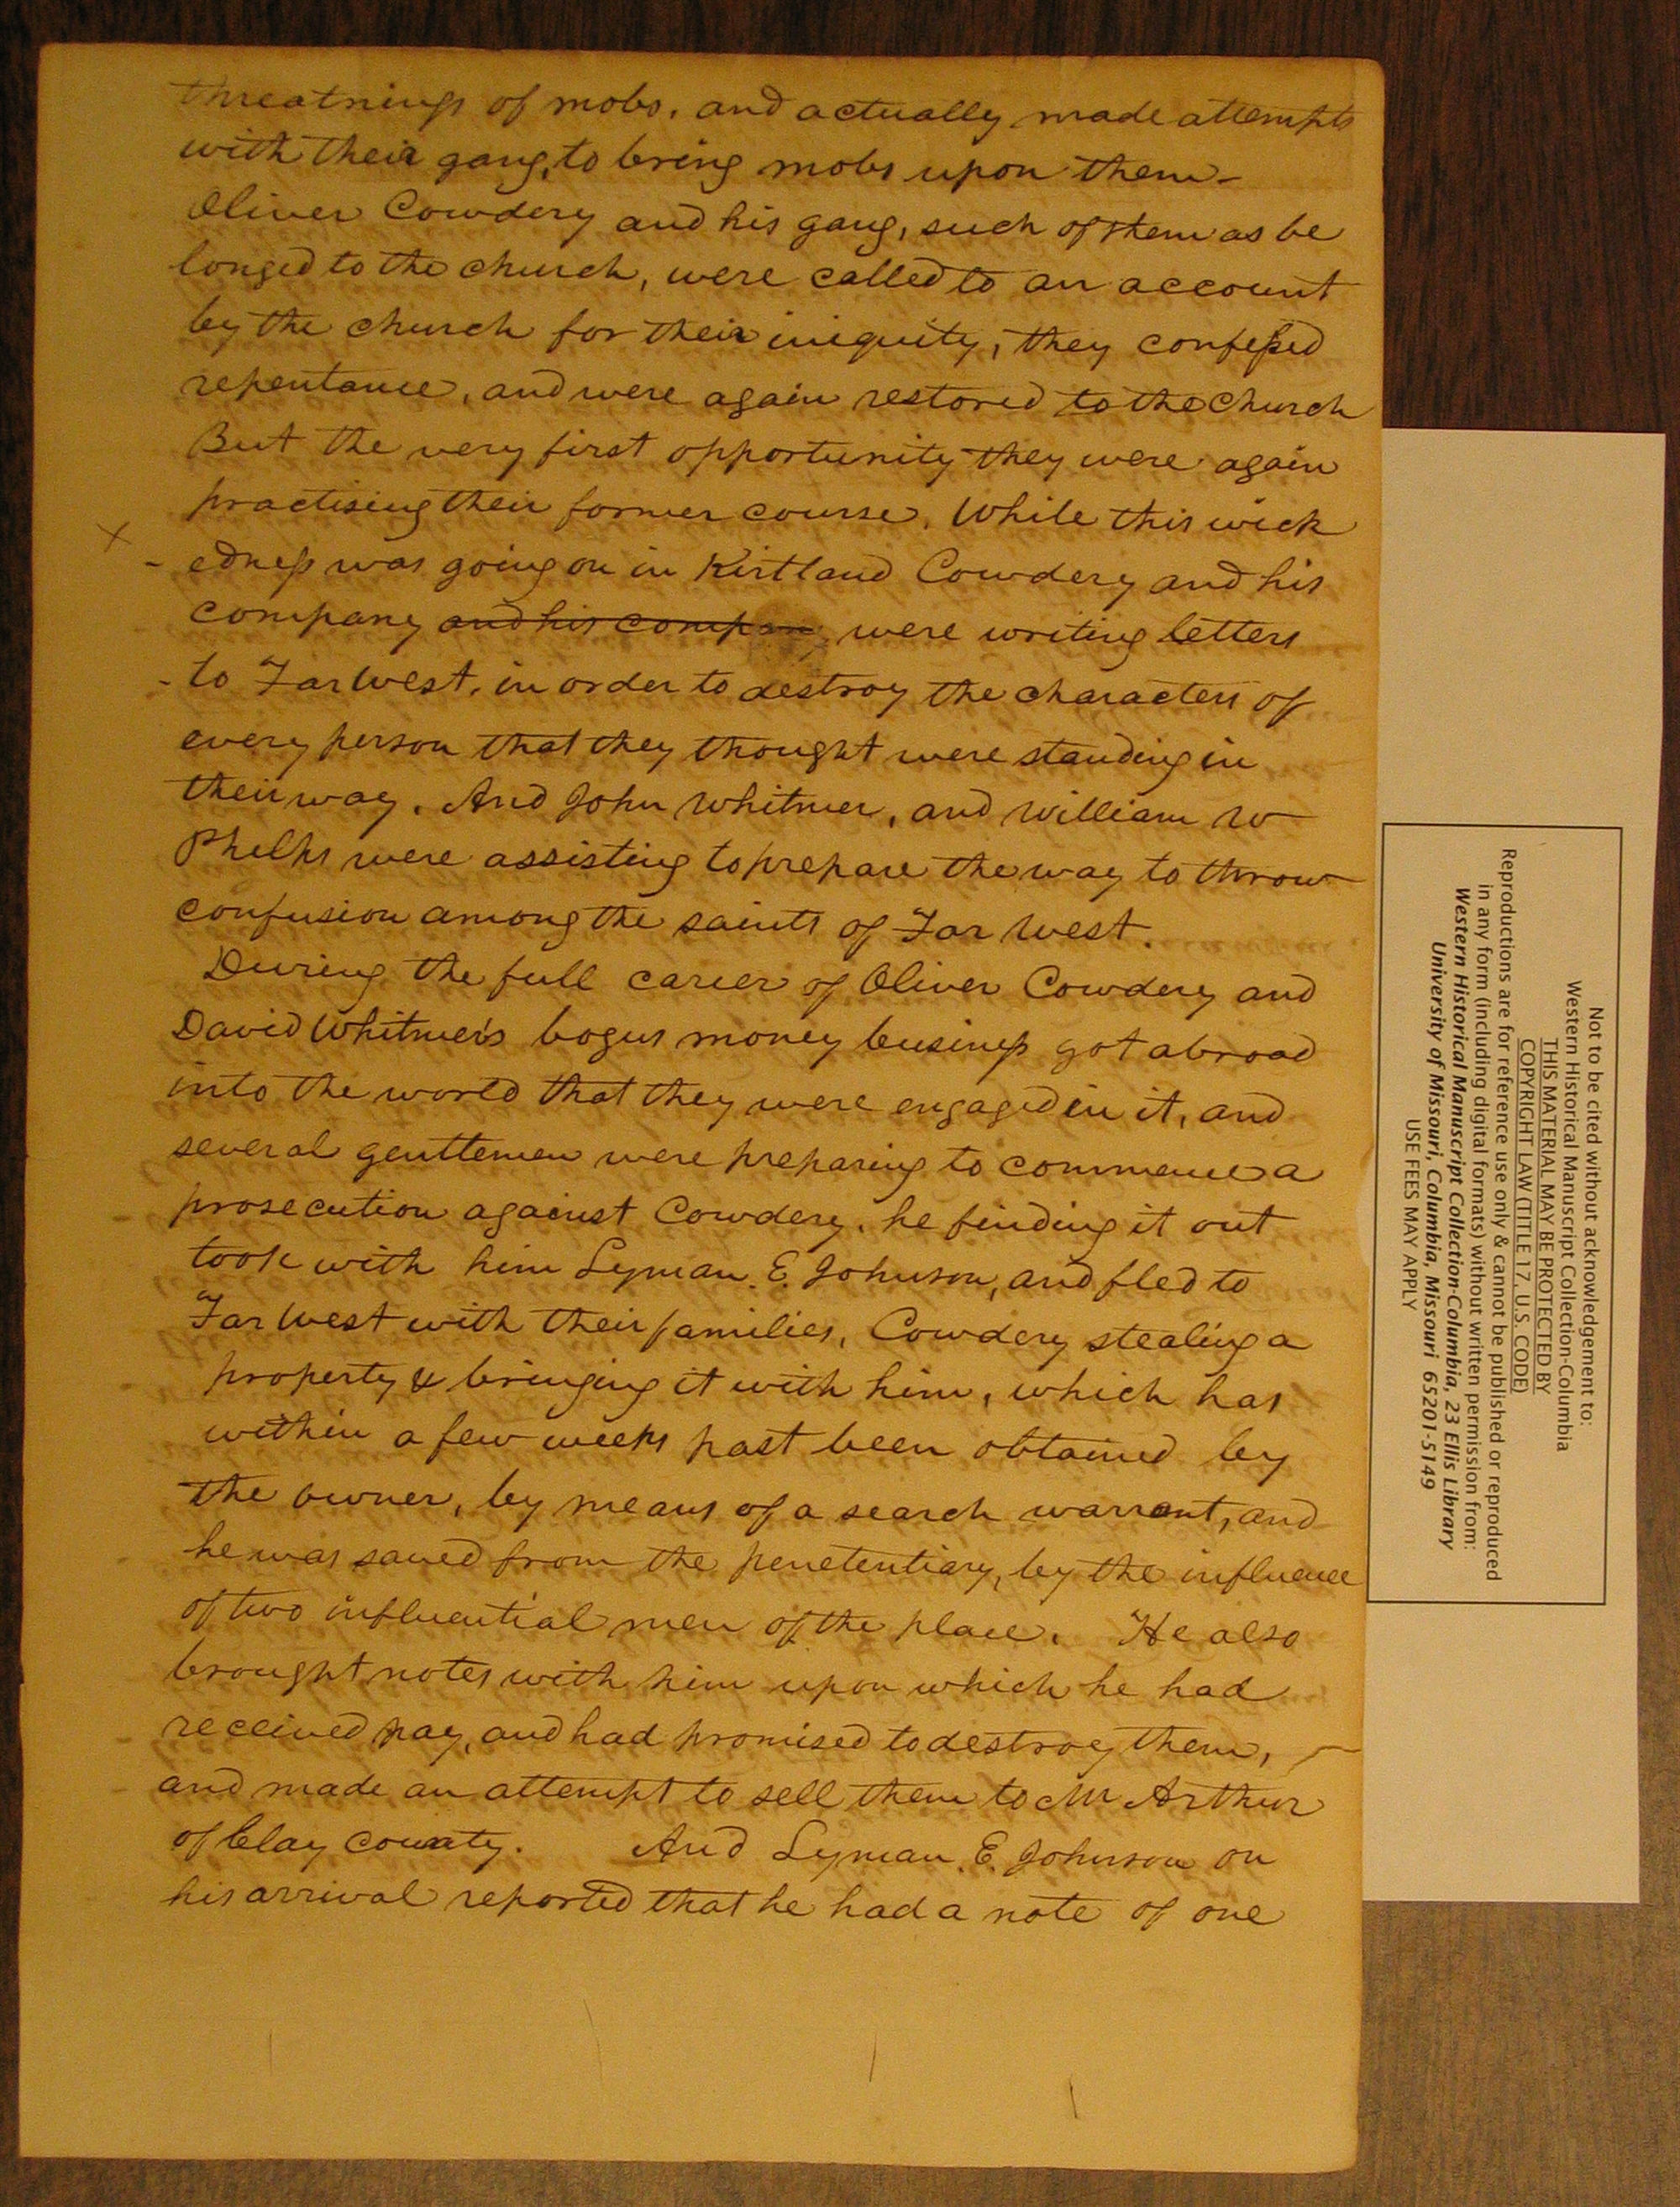 threatnings of mobs, and actually made attempts
with their gang, to bring mobs upon them-
Oliver Cowdery and his gang, such of them as be
longed to the church, were called to an account
by the church for their iniquity, they confessed
repentance, and were again restored to the church
But the very first opportunity they were again
practising their former course. While this wick
edness was going on in Kirtland Cowdery and his
company and his company were writing letters
to Far West, in order to destroy the characters of
every person that they thought were standing in
their way. And John Whitmer, and William W
Phelps were assisting to prepare the way to throw
confusion among the saints of Far West.
During the full career of Oliver Cowdery and
David Whitmer's bogus money business got abroad
into the world that they were engaged in it, and
several genttemen were preparing to commence a
prosecution against Cowdery, he finding it out
took with him Lyman E. Johnson, and fled to
Far West with their families, Cowdery stealing a
property & bringing it with him, which has
within a few weeks past been obtained by
the owner, by means of a search warrant, and
he was saved from the penetentiary, by the influence
of two influential men of the place. He also
brought notes with him upon which he had
received pay, and had promised to destroy them,
and made an attempt to sell them to Mr Arthur
of Clay County. And Lyman E. Johnson on
his arrival reported that he had a note of one
Not to be cited without acknowledgement to:
Western Historical Manuscript Collection-Columbia
THIS MATERIAL MAY BE PROTECTED BY
COPYRIGHT LAW (TITLE 17, U.S. CODE)
Reproductions are for reference use only & cannot be published or reproduced
in any form (including digital formats) without written permission from:
Western Historical Manuscript Collection-Columbia, 23 Ellis Library
University of Missouri, Columbia, Missouri 65201-5149
USE FEES MAY APPLY